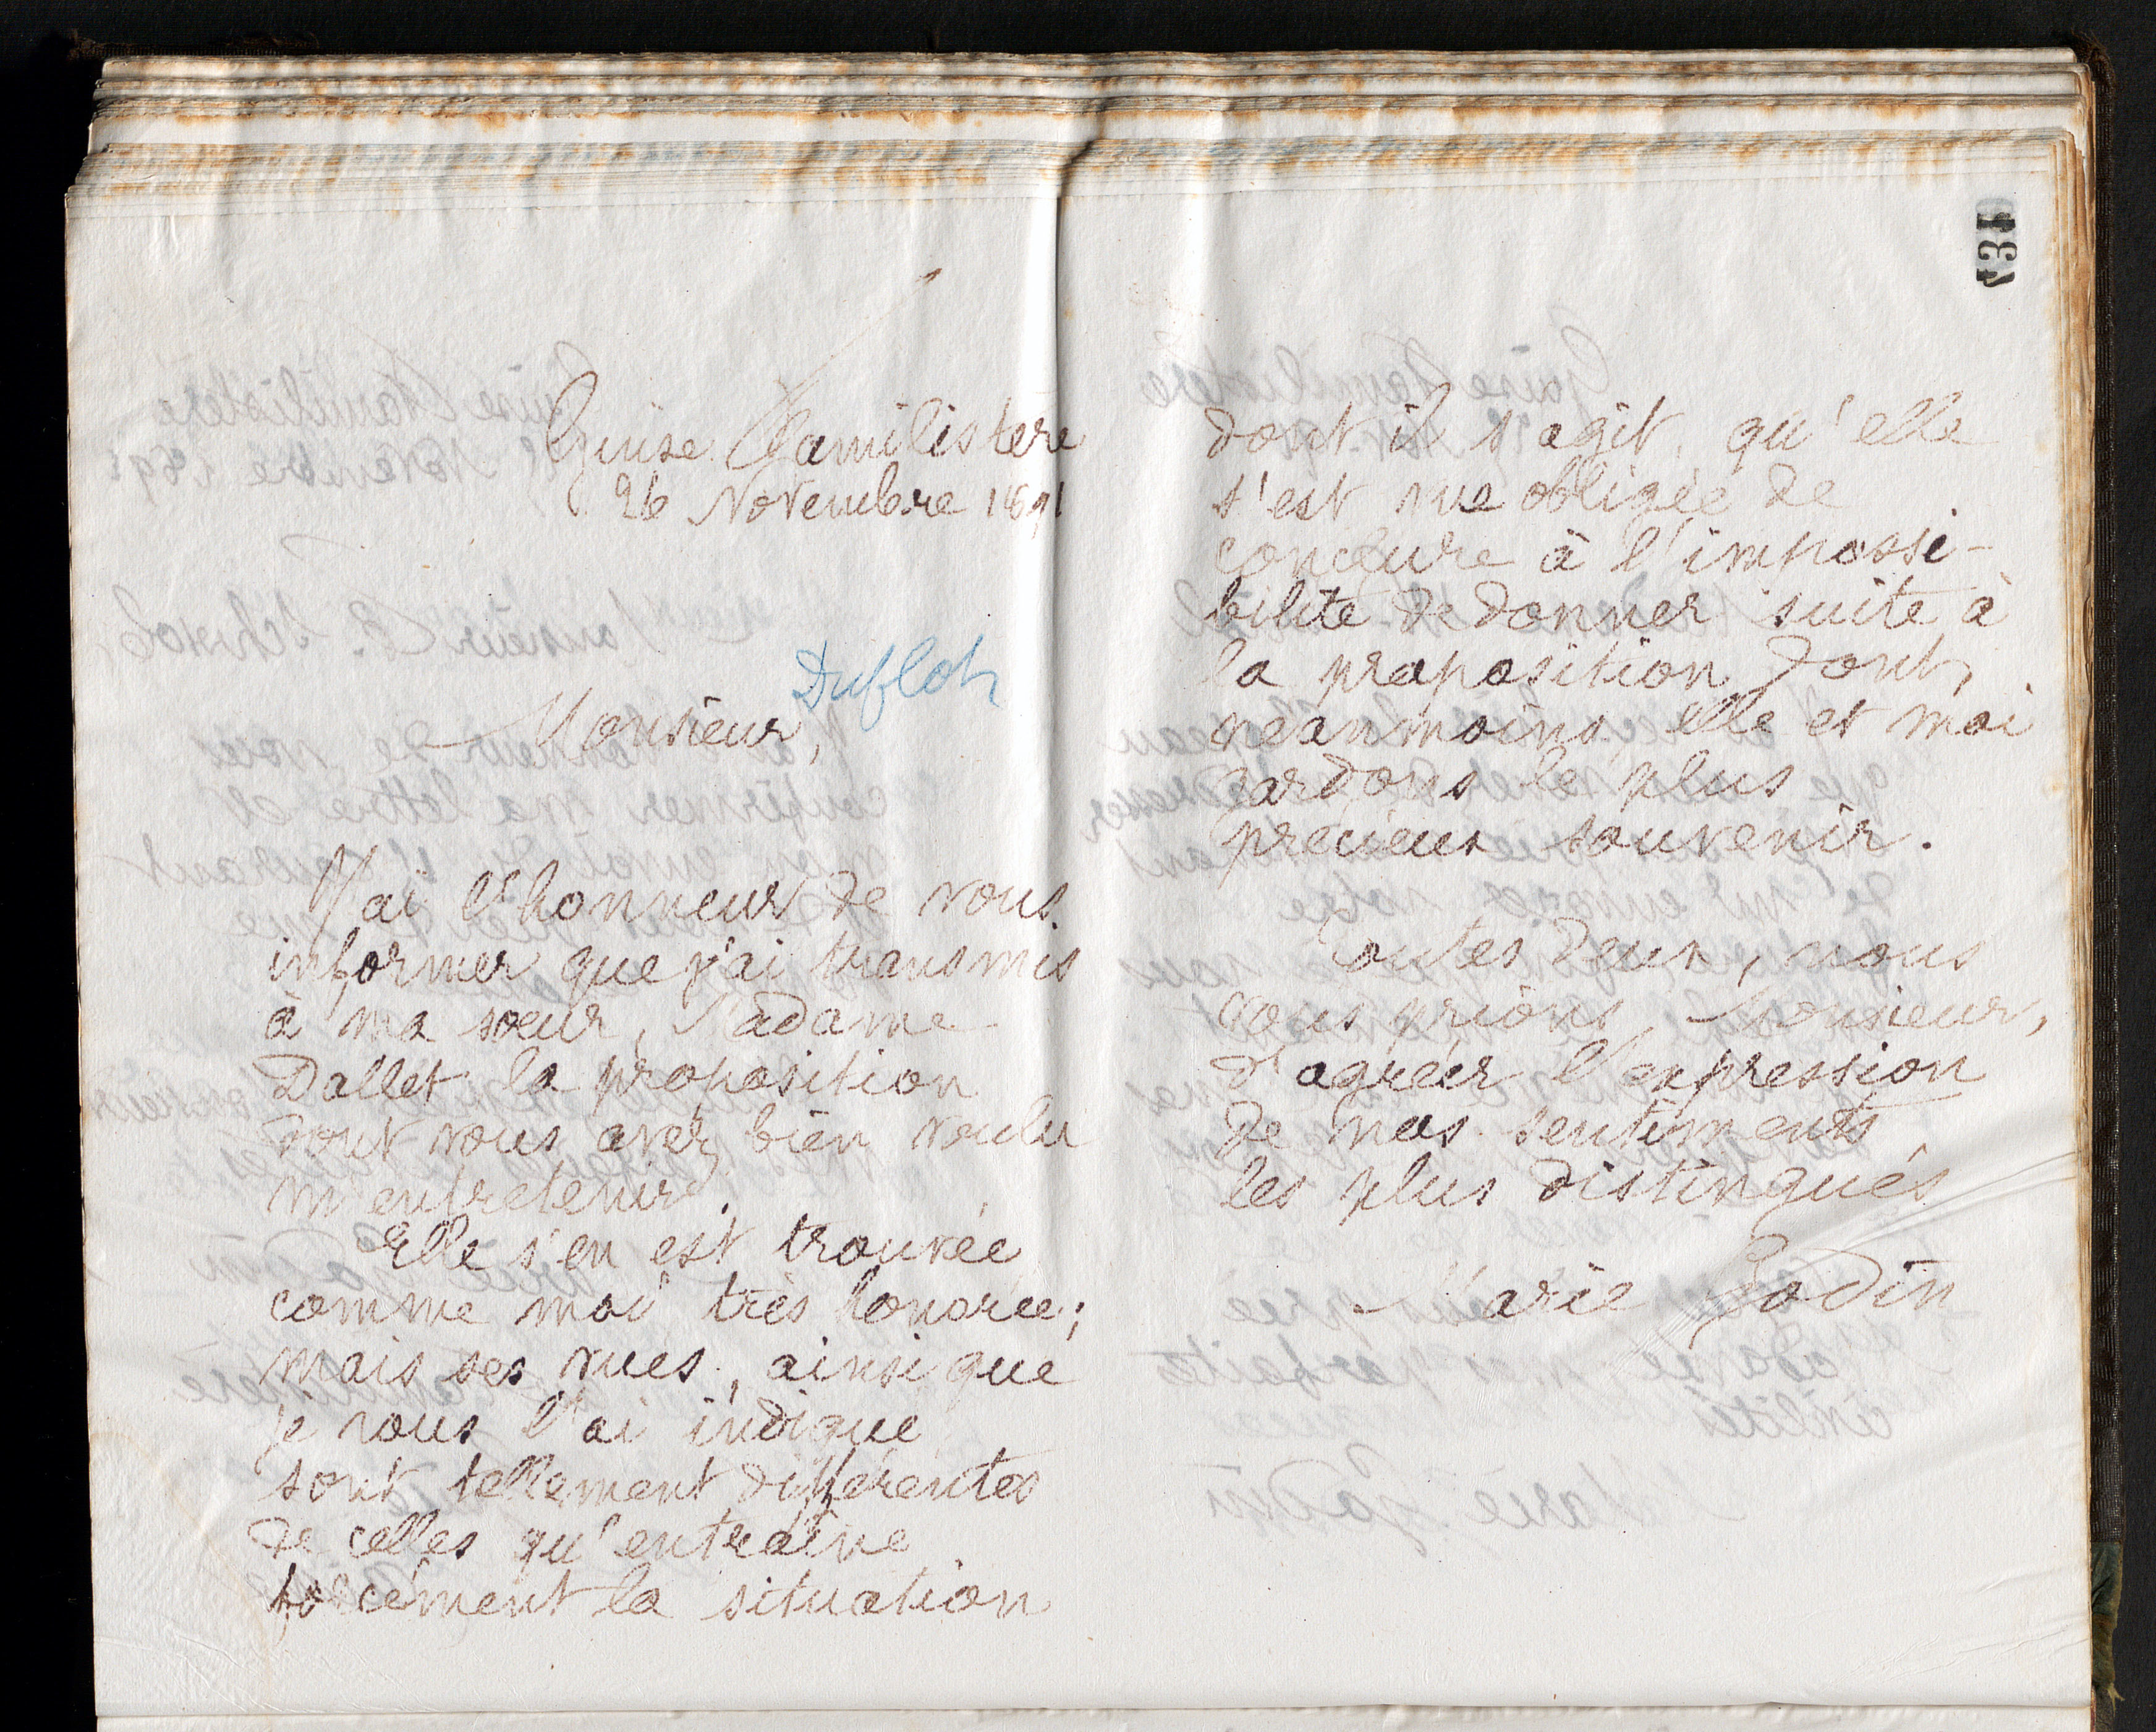 Guise Familistère
26 Novembre 1891
Duflot
Monsieur,
J'ai l'honneur de vous
informer que j'ai transmis
à ma sœur, Madame
Dallet la proposition
dont vous avez bien voulu
m'entretenir.
Elle s'en est trouvée
comme moi très honorée;
mais ses vues, ainsi que
je vous l'ai indiqué
sont tellement différentes
de celles qu'entraîne
forcément la situation
dont il s'agit, qu'elle
s'est vue obligée de
conclure à l'impossi-
bilité de donner suite à
la proposition dont,
néanmoins, elle et moi
gardons le plus
précieux souvenir.
Toutes deux, nous
vous prions, Monsieur,
d'agréer l'expression
de nos sentiments
les plus distingués
Marie Godin